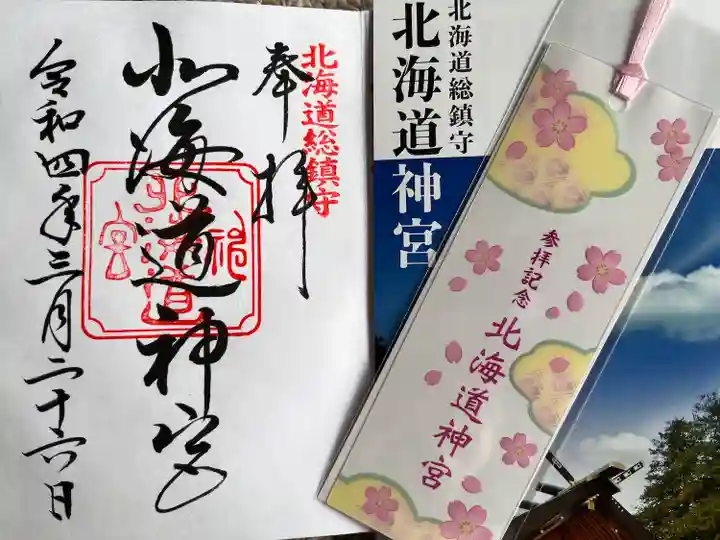 北海道総鎮守
奉拝
北海道神宮
令和四年三月二十六日
北海道総鎮守
北海道神宮
参拝記念
北海道神宮